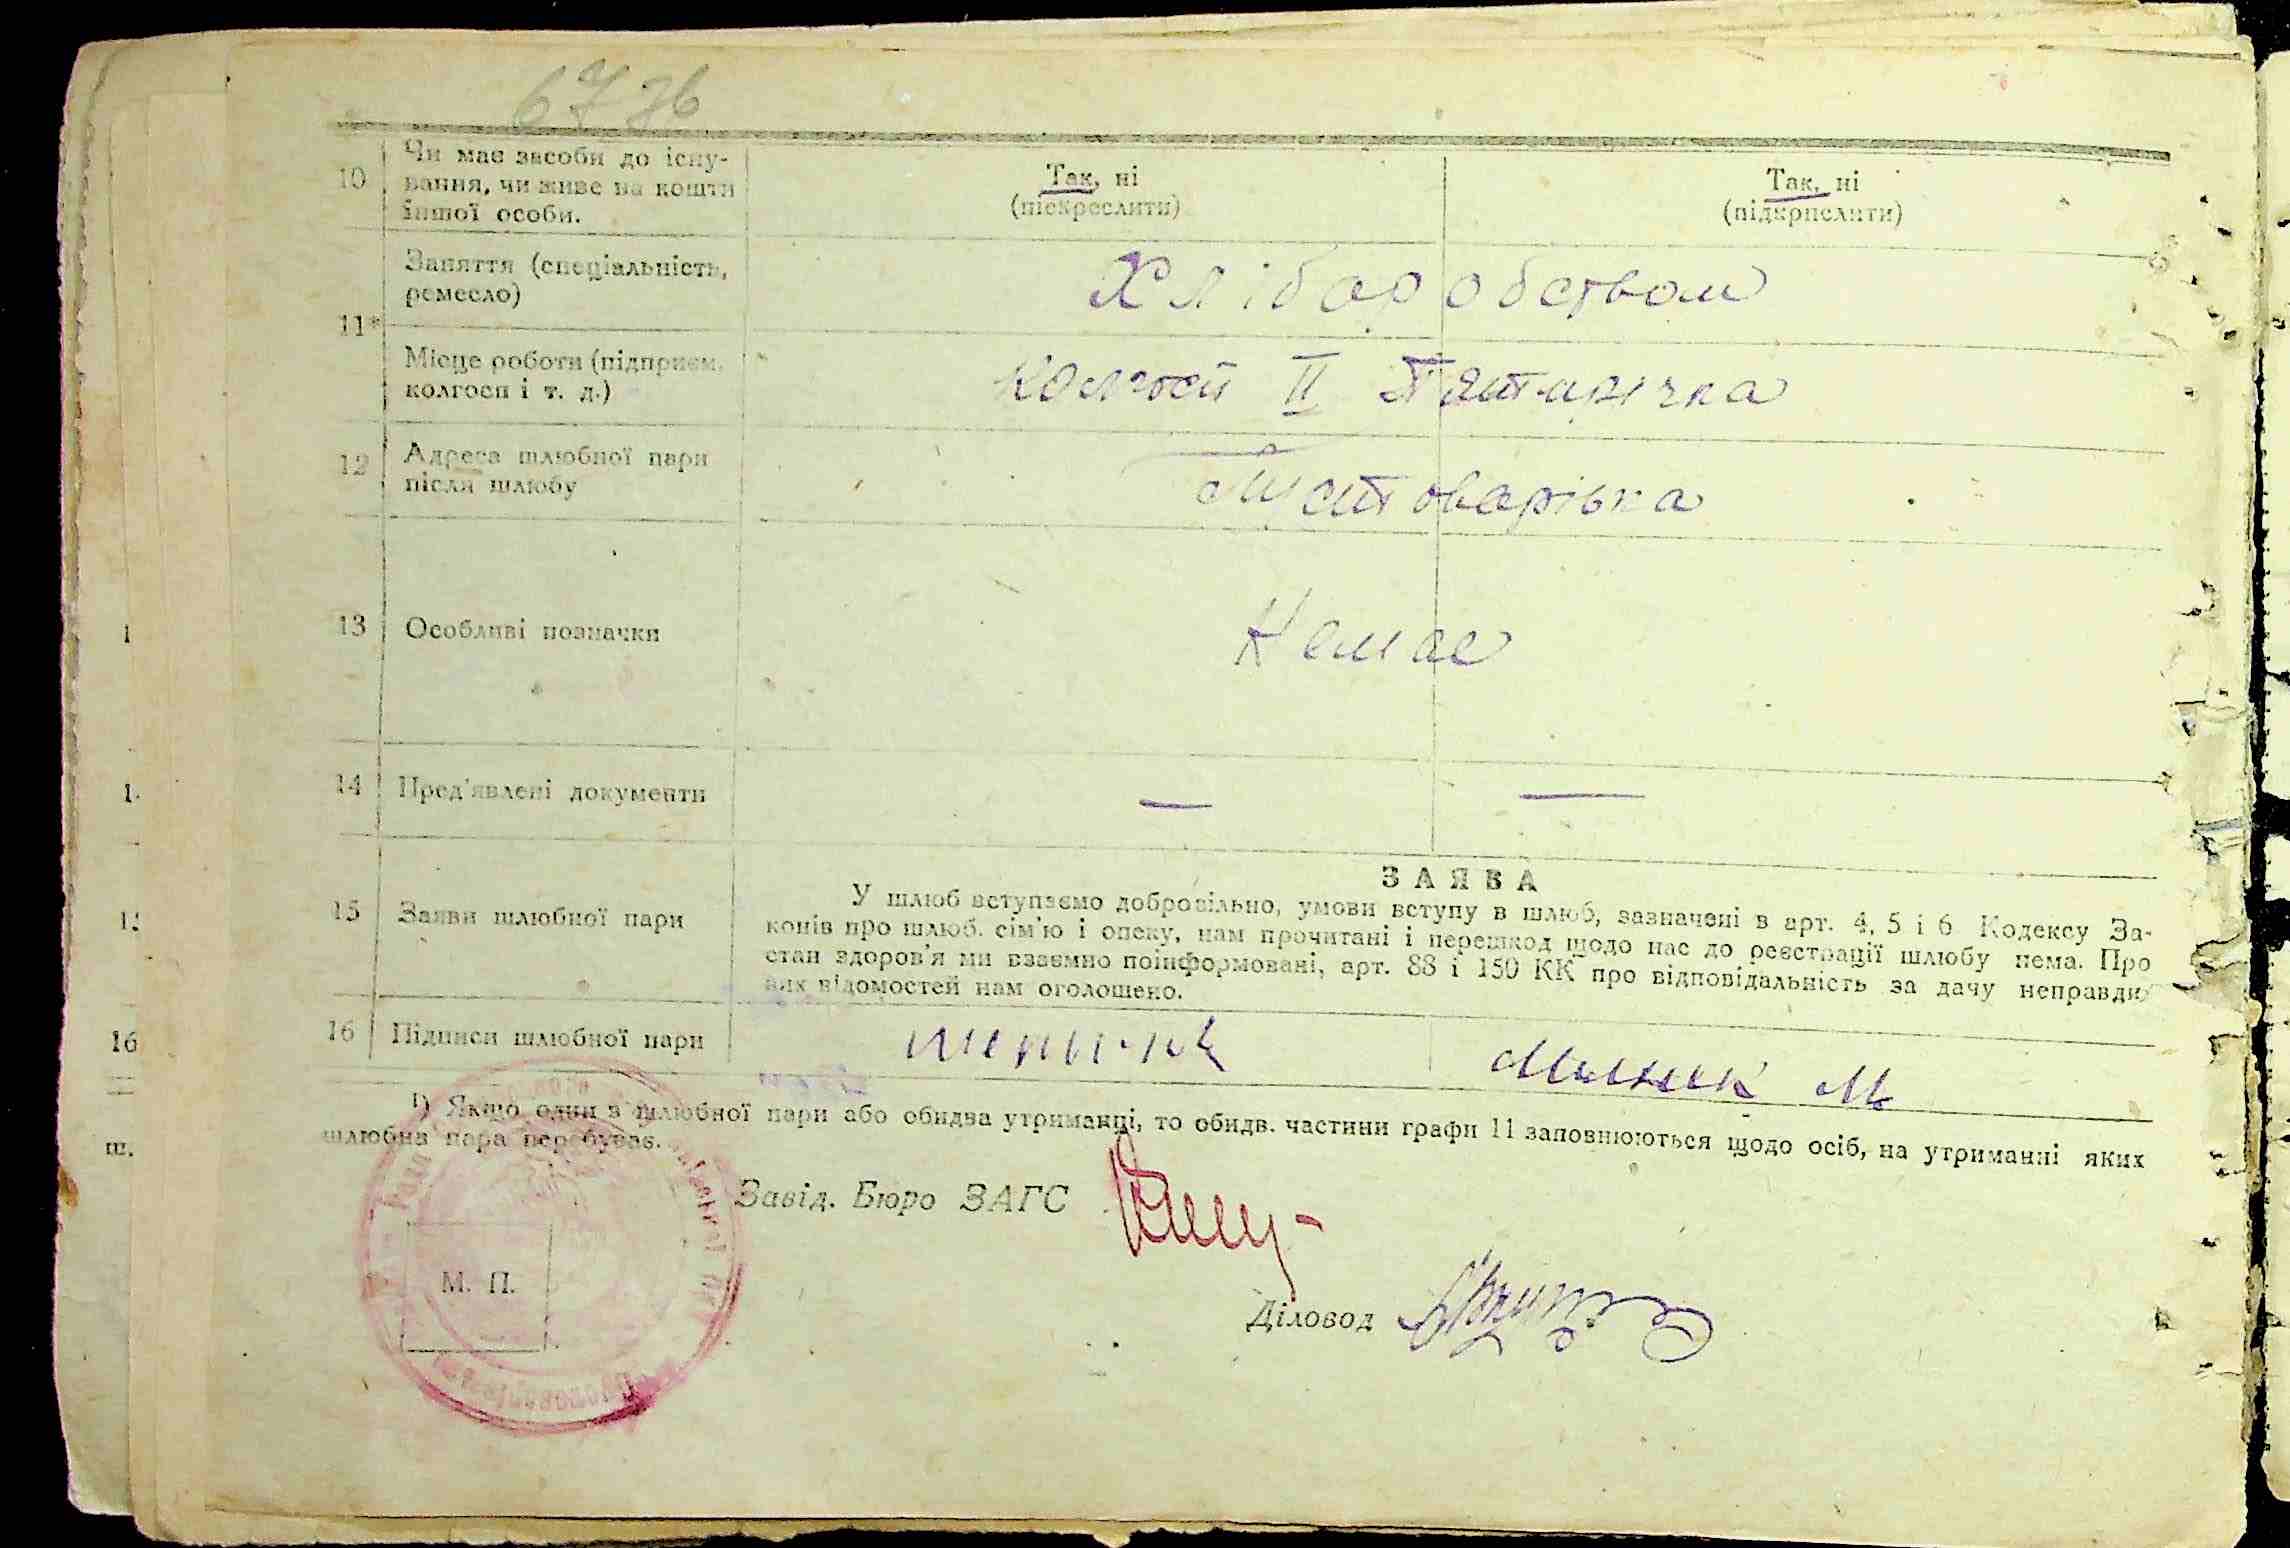 67 зв
10 Чи має засоби до існу-
вання, чи живе на кошти
іншої особи.
Так, ні
(піскреслити)
Так, ні
(підкрпслити)
11* Заняття (спеціальність,
ремесло)
Хліборобством
Місце роботи (підприєм.
колгосп і т. д.)
колгосп II Пятирічка
12 Адреса шлюбної пари
після шлюбу
Пустоварівка
13 Особливі позначки
Немає
14 Пред'явлені документи
— —
15 Заяви шлюбної пари
ЗАЯВА
У шлюб вступаємо добровільно, умови вступу в шлюб, зазначені в арт. 4, 5 і 6 Кодексу За-
конів про шлюб. сім'ю і опеку, нам прочитані і перешкод щодо нас до реєстрації шлюбу нема. Про
стан здоров'я ми взаємно поінформовані, арт. 88 і 150 КК про відповідальність за дачу неправди-
вих відомостей нам оголошено.
16 Підписи шлюбної пари
Мельник М
1) Якщо один з шлюбної пари або обидва утриманці, то обидв. частини графи 11 заповнюються щодо осіб, на утриманні яких
шлюбна пара перебуває.
Завід. Бюро ЗАГС
М. П.
Діловод